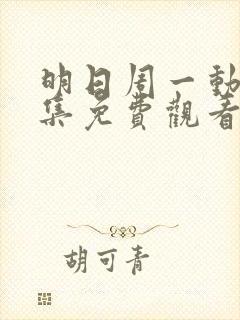 明日周一動
集免費觀看
胡可青